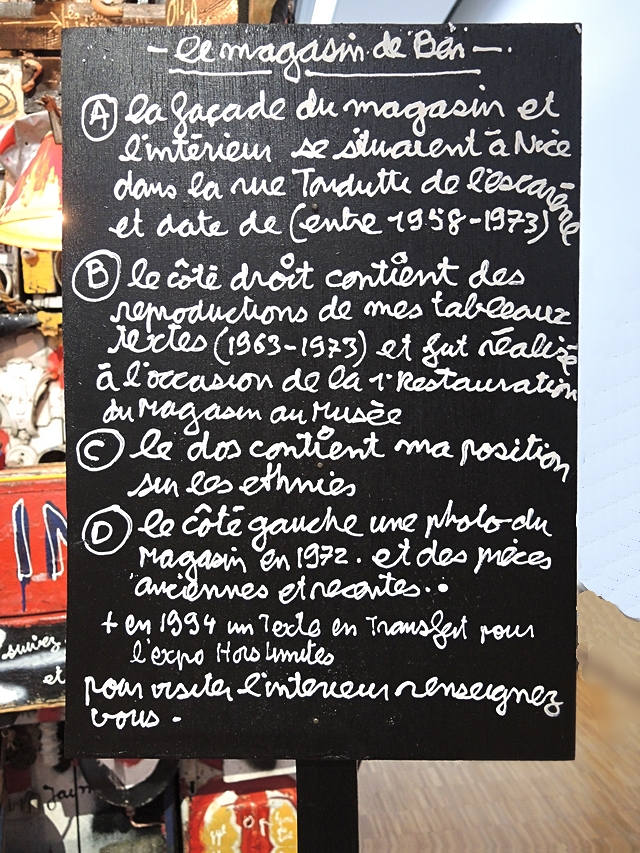 - le magasin de Ben -.
A la façade du magasin et
l'intérieur se situaient à Nice
dans la rue Tondutti de l'escarène
et date de (entre 1958-1973)
B le côté droit contient des
reproductions de mes tableaux
textes (1963-1973) et fut réalisé
à l'occasion de la 1e Restauration
du Magasin au Musée
C le dos contient ma position
sur les ethnies
D le côté gauche une photo du
Magasin en 1972. et des pièces
anciennes et recentes..
+ en 1994 un Texte en Transfert pour
l'expo Hors Limites
pour visiter l'interieur renseignez
vous -
IN
suivez
et